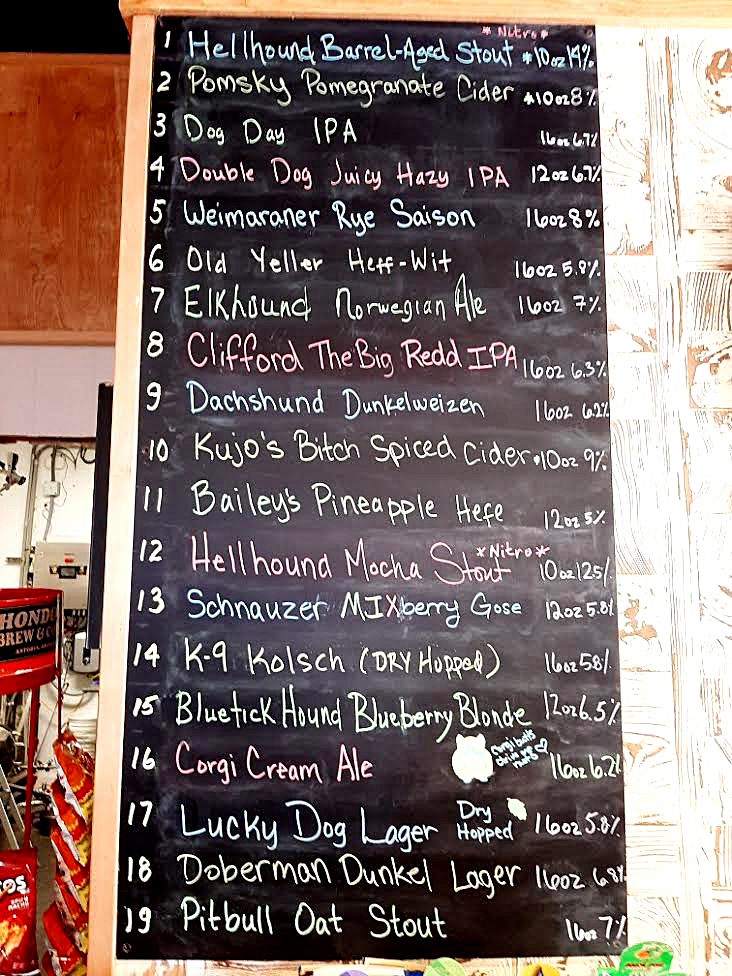 *Nitro*
1 Hellhound Barrel-Aged Stout *10oz 14%
2 Pomsky Pomegranate Cider *10oz 8%
3 Dog Day IPA 16oz 6.7%
4 Double Dog Juicy Hazy IPA 12oz 6.7%
5 Weimaraner Rye Saison 16oz 8%
6 Old Yeller Heff-Wit 16oz 5.8%
7 Elkhound Norwegian Ale 16oz 7%
8 Clifford The Big Redd IPA 16oz 6.3%
9 Dachshund Dunkelweizen 16oz 6.2%
10 Kujo's Bitch Spiced Cider *10oz 9%
11 Bailey's Pineapple Hefe 12oz 5%
*Nitro*
12 Hellhound Mocha Stout 10oz 12.5%
13 Schnauzer MIXberry Gose 12oz 5.8%
14 K-9 Kolsch (DRY Hopped) 16oz 5.8%
15 Bluetick Hound Blueberry Blonde 12oz 6.5%
16 Corgi Cream Ale 16oz 6.2%
corgi butts
drive me
nuts
17 Lucky Dog Lager Dry Hopped 16oz 5.8%
18 Doberman Dunkel Lager 16oz 6.8%
19 Pitbull Oat Stout 16oz 7%
HOND
BREW & C
TOS